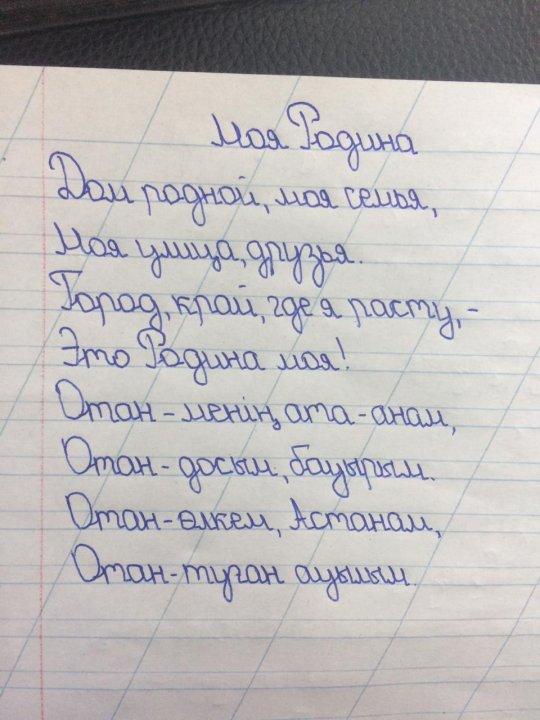 Моя Родина
Дом родной, моя семья,
Моя улица, друзья.
Город, край, где я расту, -
Это Родина моя!
Отан - менің ата - анам,
Отан - досым, бауырым.
Отан - өлкем, Астанам,
Отан - туған ауылым.